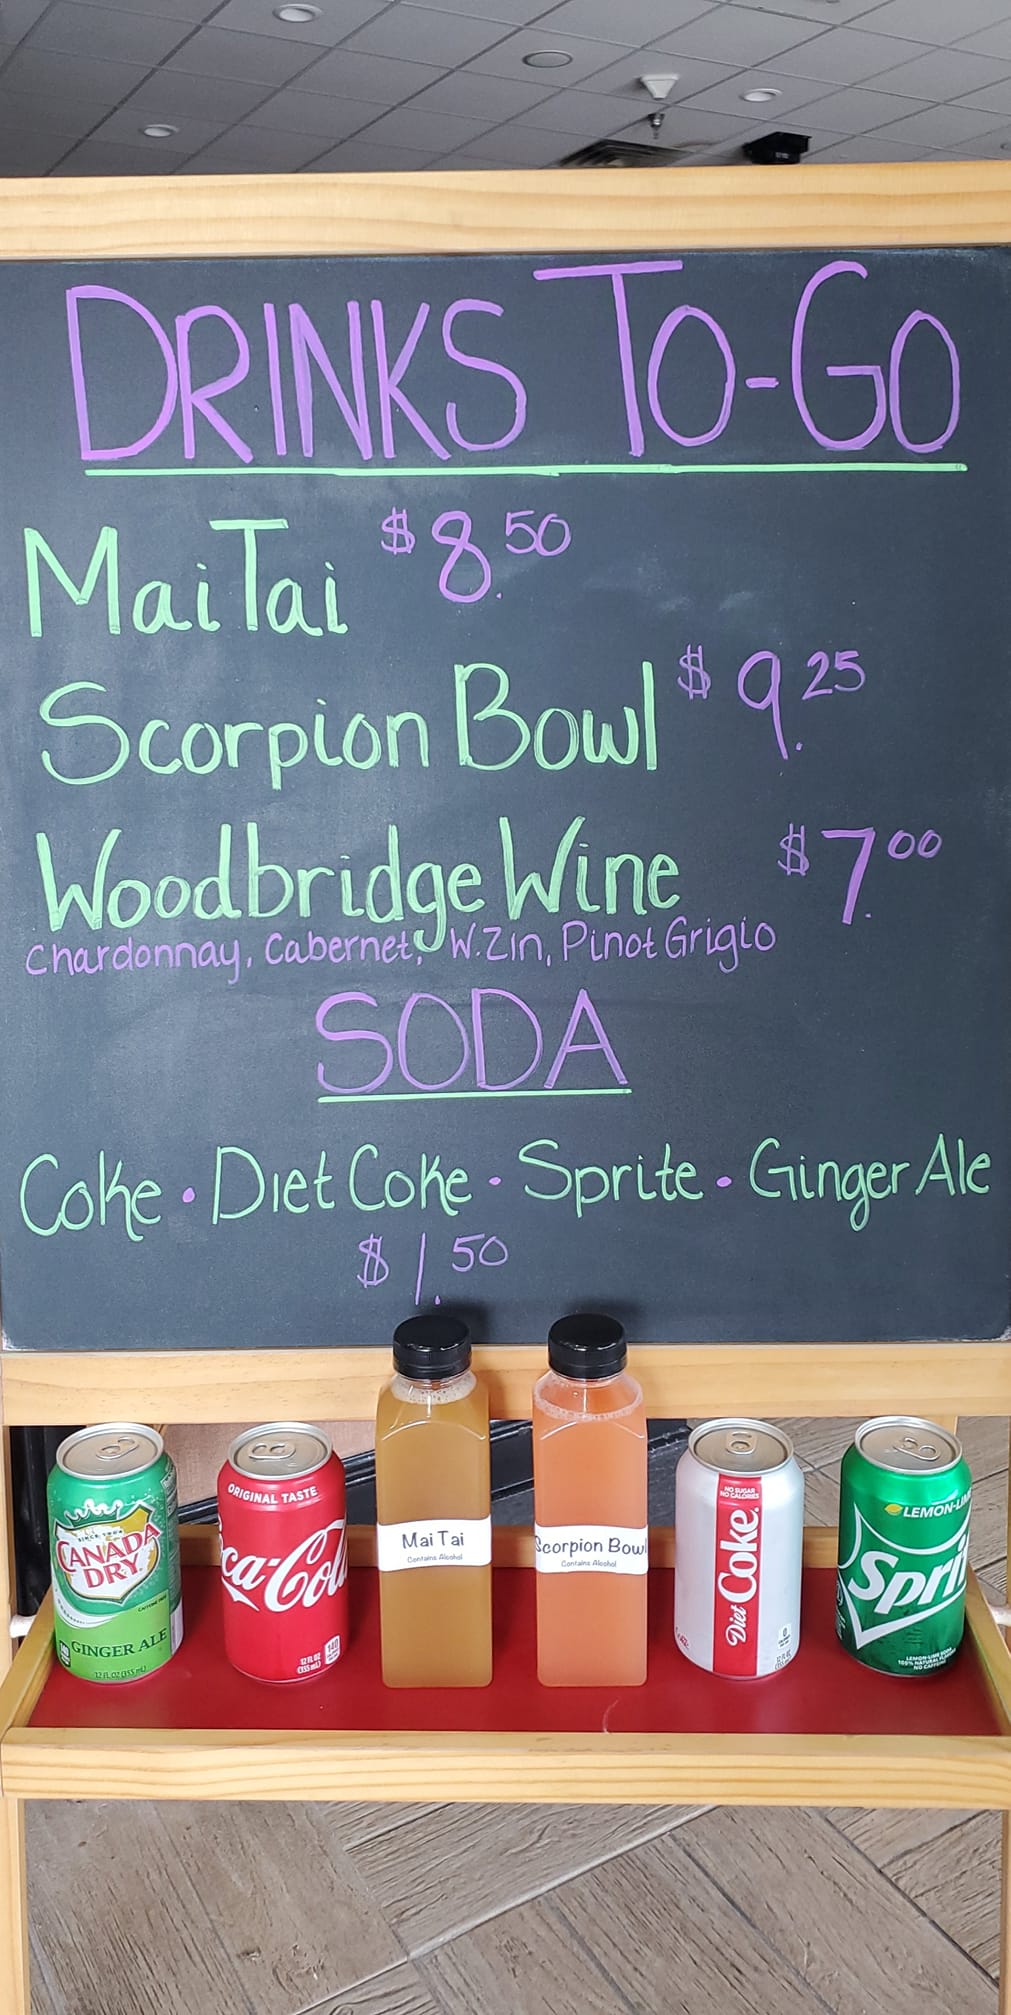 DRINKS TO-GO
Mai Tai $8.50
Scorpion Bowl $9.25
Woodbridge Wine $7.00
Chardonnay, Cabernet, W.Zin, Pinot Grigio
SODA
Coke · Diet Coke · Sprite · Ginger Ale
$1.50
SINCE 1904
CANADA
DRY
CAFFEINE FREE
GINGER ALE
12 FL OZ (355 mL)
ORIGINAL TASTE
ca-Col
140
12 FL OZ
(355 mL)
Mai Tai
Contains Alcohol
Scorpion Bowl
Contains Alcohol
NO SUGAR
NO CALORIES
Diet Coke
0
12 FL OZ
LEMON-LIM
Sprit
LEMON-LIME SODA
100% NATURAL FLAVORS
NO CAFFEINE